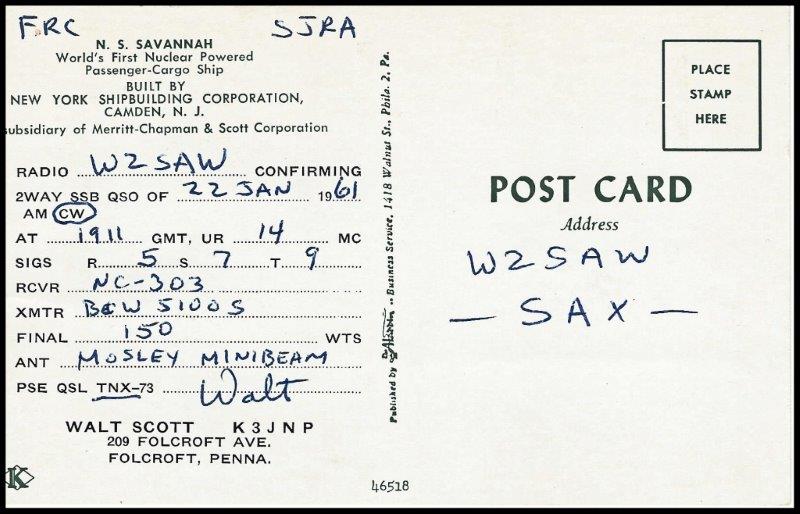 FRC SJRA
N. S. SAVANNAH
World's First Nuclear Powered
Passenger-Cargo Ship
BUILT BY
NEW YORK SHIPBUILDING CORPORATION,
CAMDEN, N. J.
subsidiary of Merritt-Chapman & Scott Corporation
RADIO W2SAW CONFIRMING
2WAY SSB QSO OF 22 JAN 1961
AM CW
AT 1911 GMT, UR 14 MC
SIGS R 5 S 7 T 9
RCVR NC-303
XMTR B&W 5100S
FINAL 150 WTS
ANT MOSLEY MINIBEAM
PSE QSL TNX-73 Walt
WALT SCOTT K3JNP
209 FOLCROFT AVE.
FOLCROFT, PENNA.
K
Published by Business Service, 1418 Walnut St., Phila. 2, Pa.
46518
PLACE
STAMP
HERE
POST CARD
Address
W2SAW
— SAX —